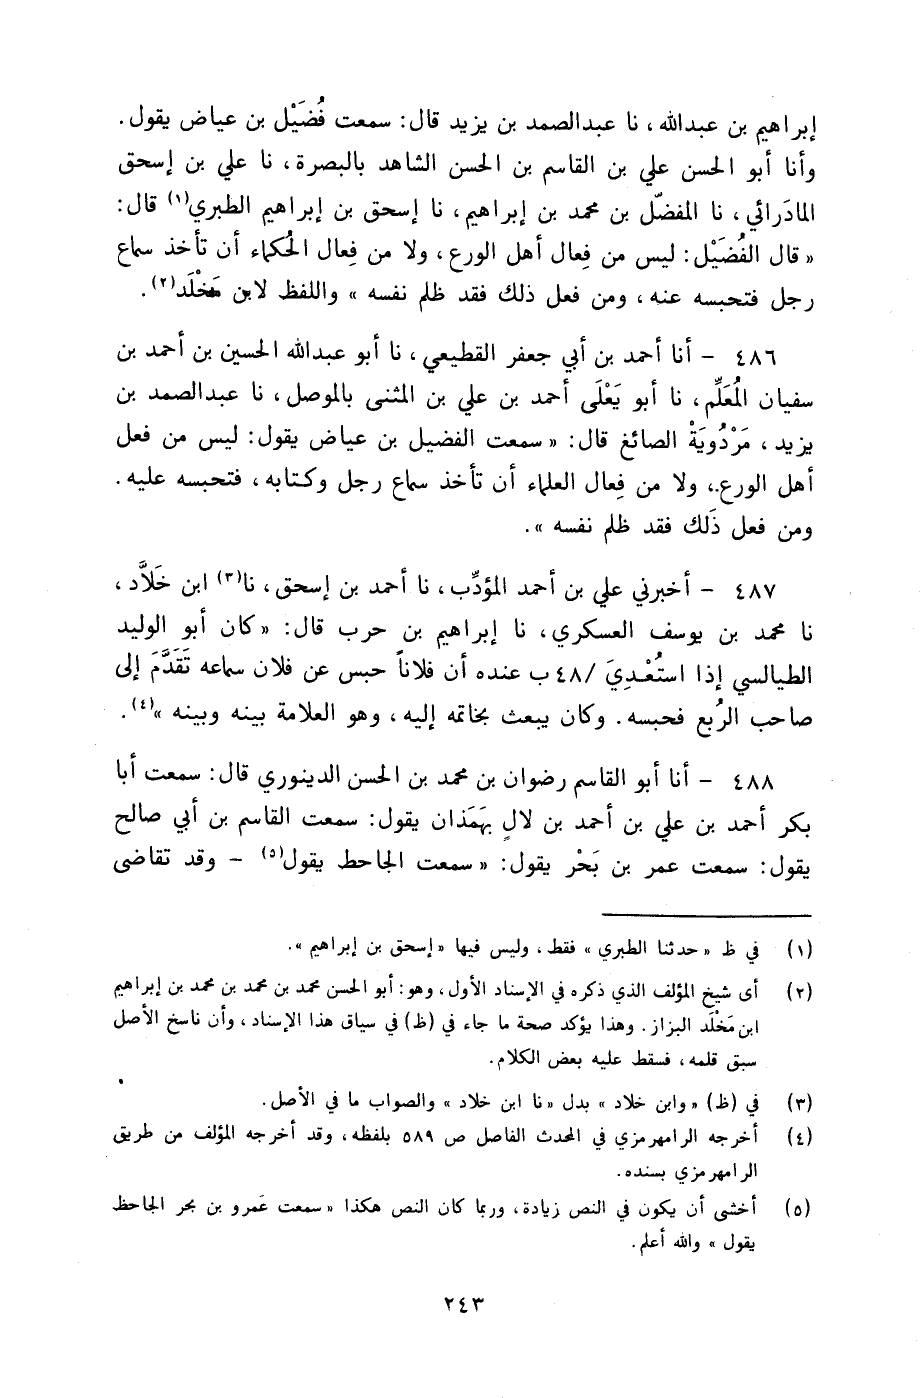 إبراهيم بن عبدالله، نا عبدالصمد بن يزيد قال: سمعت فُضَيْل بن عياض يقول.
وأنا أبو الحسن علي بن القاسم بن الحسن الشاهد بالبصرة، نا علي بن إسحق
المادَرائي، نا المفضّل بن محمد بن إبراهيم، نا إسحق بن إبراهيم الطبري(١) قال:
« قال الفُضَيْل: ليس من فِعال أهل الورع، ولا من فِعال الحُكماء أن تأخذ سماع
رجل فتحبسه عنه، ومن فعل ذلك فقد ظلم نفسه » واللفظ لابن مَخْلَد(٢).
٤٨٦ - أنا أحمد بن أبي جعفر القطيعي، نا أبو عبدالله الحسين بن أحمد بن
سفيان المُعَلِّم، نا أبو يَعْلَى أحمد بن علي بن المثنى بالموصل، نا عبدالصمد بن
يزيد، مَرْدُويَةْ الصائغ قال: « سمعت الفضيل بن عياض يقول: ليس من فعل
أهل الورع.، ولا من فِعال العلماء أن تأخذ سماع رجل وكتابه، فتحبسه عليه.
ومن فعل ذَلك فقد ظلم نفسه ».
٤٨٧ - أخبرني علي بن أحمد المؤدِّب، نا أحمد بن إسحق، نا(٣) ابن خَلاَّد،
نا محمد بن يوسف العسكري، نا إبراهيم بن حرب قال: « كان أبو الوليد
الطيالسي إذا استُعْدِيَ /٤٨ ب عنده أن فلاناً حبس عن فلان سماعه تَقَدَّمَ إلى
صاحب الرُبع فحبسه. وكان يبعث بخاتمه إليه، وهو العلامة بينه وبينه »(٤).
٤٨٨ - أنا أبو القاسم رضوان بن محمد بن الحسن الدينوري قال: سمعت أبا
بكر أحمد بن علي بن أحمد بن لالٍ بهَمَذان يقول: سمعت القاسم بن أبي صالح
يقول: سمعت عمر بن بَحْر يقول: « سمعت الجاحظ يقول(٥) - وقد تقاضى
(١) في ظ « حدثنا الطبري » فقط، وليس فيها « إسحق بن إبراهيم ».
(٢) أى شيخ المؤلف الذي ذكره في الإسناد الأول، وهو: أبو الحسن محمد بن محمد بن محمد بن إبراهيم
ابن مَخْلَد البزاز. وهذا يؤكد صحة ما جاء في (ظ) في سياق هذا الإسناد، وأن ناسخ الأصل
سبق قلمه، فسقط عليه بعض الكلام.
(٣) في (ظ) « وابن خلاد » بدل « نا ابن خلاد » والصواب ما في الأصل.
(٤) أخرجه الرامهرمزي في المحدث الفاصل ص ٥٨٩ بلفظه، وقد أخرجه المؤلف من طريق
الرامهرمزي بسنده.
(٥) أخشى أن يكون في النص زيادة، وربما كان النص هكذا « سمعت عَمرو بن بحر الجاحظ
يقول » والله أعلم.
٢٤٣